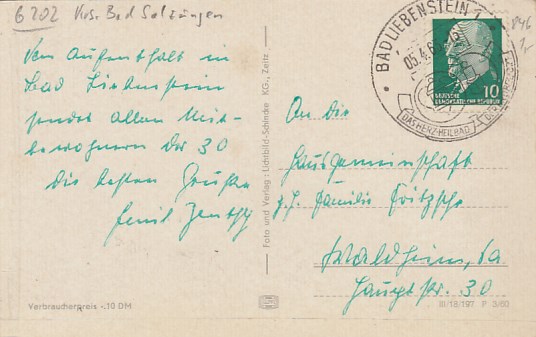 6202 Krs. Bad Salzungen
Vom Aufenthalt in
Bad Liebenstein
sendet allen Mit-
bewohnern der 30
die besten Grüße
Verbraucherpreis -.10 DM
Foto und Verlag: Lichtbild-Schincke KG., Zeitz
BAD LIEBENSTEIN 1
05.4.6
DAS HERZ-HEILBAD
DEUTSCHE
DEMOKRATISCHE REPUBLIK
10
846
1,-
An die
Hausgemeinschaft
z.H. Familie Fritzsche
Waldheim, Sa
Hauptstr. 30
III/18/197 P 3/60